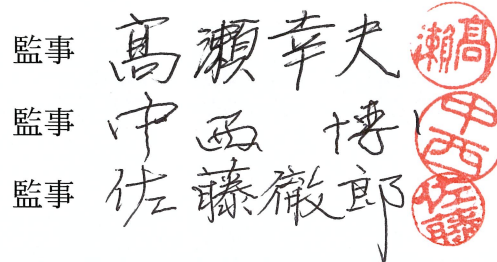 監事 髙瀬幸夫 髙瀬
監事 中西博 中西
監事 佐藤徹郎 佐藤